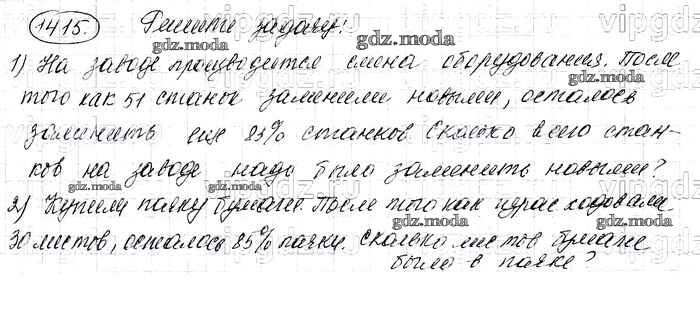 1415. Решите задачу!
1) На заводе производится смена оборудования. После
того как 51 станок заменили новыми, осталось
заменить еще 83% станков Сколько всего стан-
ков на заводе надо было заменить новыми?
2) Купили пачку бумаги. После того как израсходовали
30 листов, осталось 85% пачки. Сколько листов бумаги
было в пачке?
gdz.moda
gdz.moda
gdz.moda
gdz.moda
gdz.moda
gdz.moda
gdz.moda
gdz.moda
gdz.moda
gdz.moda